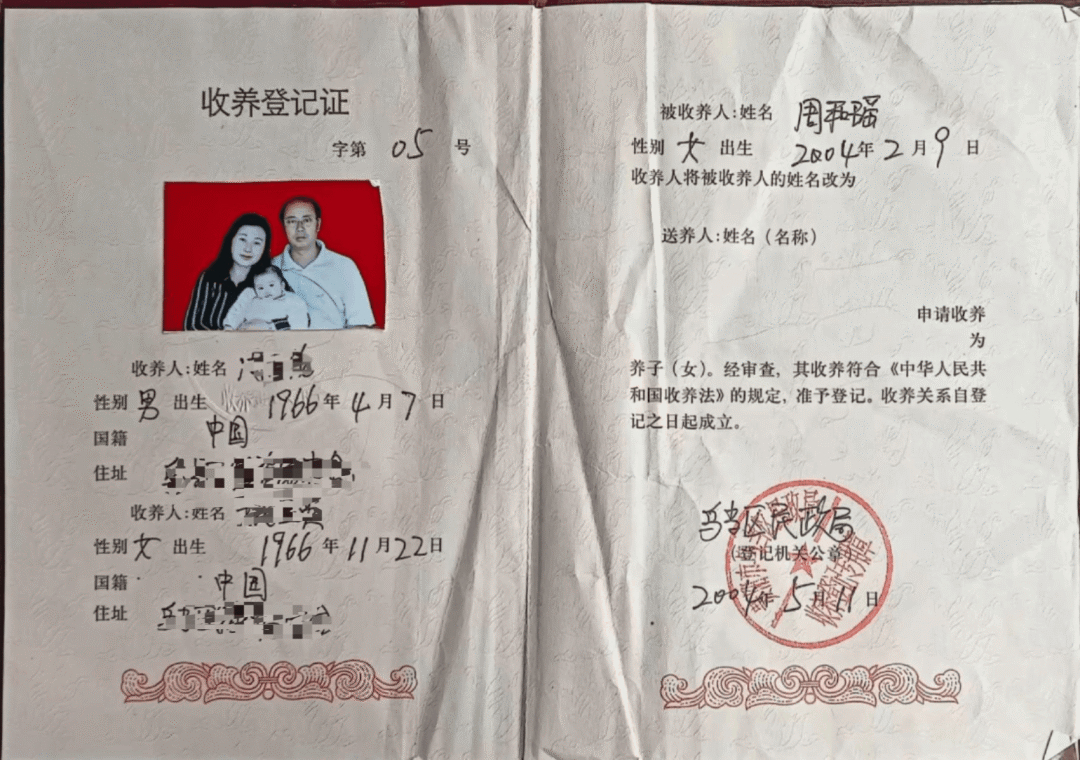 收养登记证
字第 05 号
收养人:姓名
性别 男 出生 1966年4月7日
国籍 中国
住址
收养人:姓名
性别 女 出生 1966年11月22日
国籍 中国
住址
被收养人:姓名 周
性别 女 出生 2004年2月9日
收养人将被收养人的姓名改为
送养人:姓名(名称)
申请收养
为
养子(女)。经审查,其收养符合《中华人民共
和国收养法》的规定,准予登记。收养关系自登
记之日起成立。
乌当区民政局
(登记机关公章)
2004年5月11日